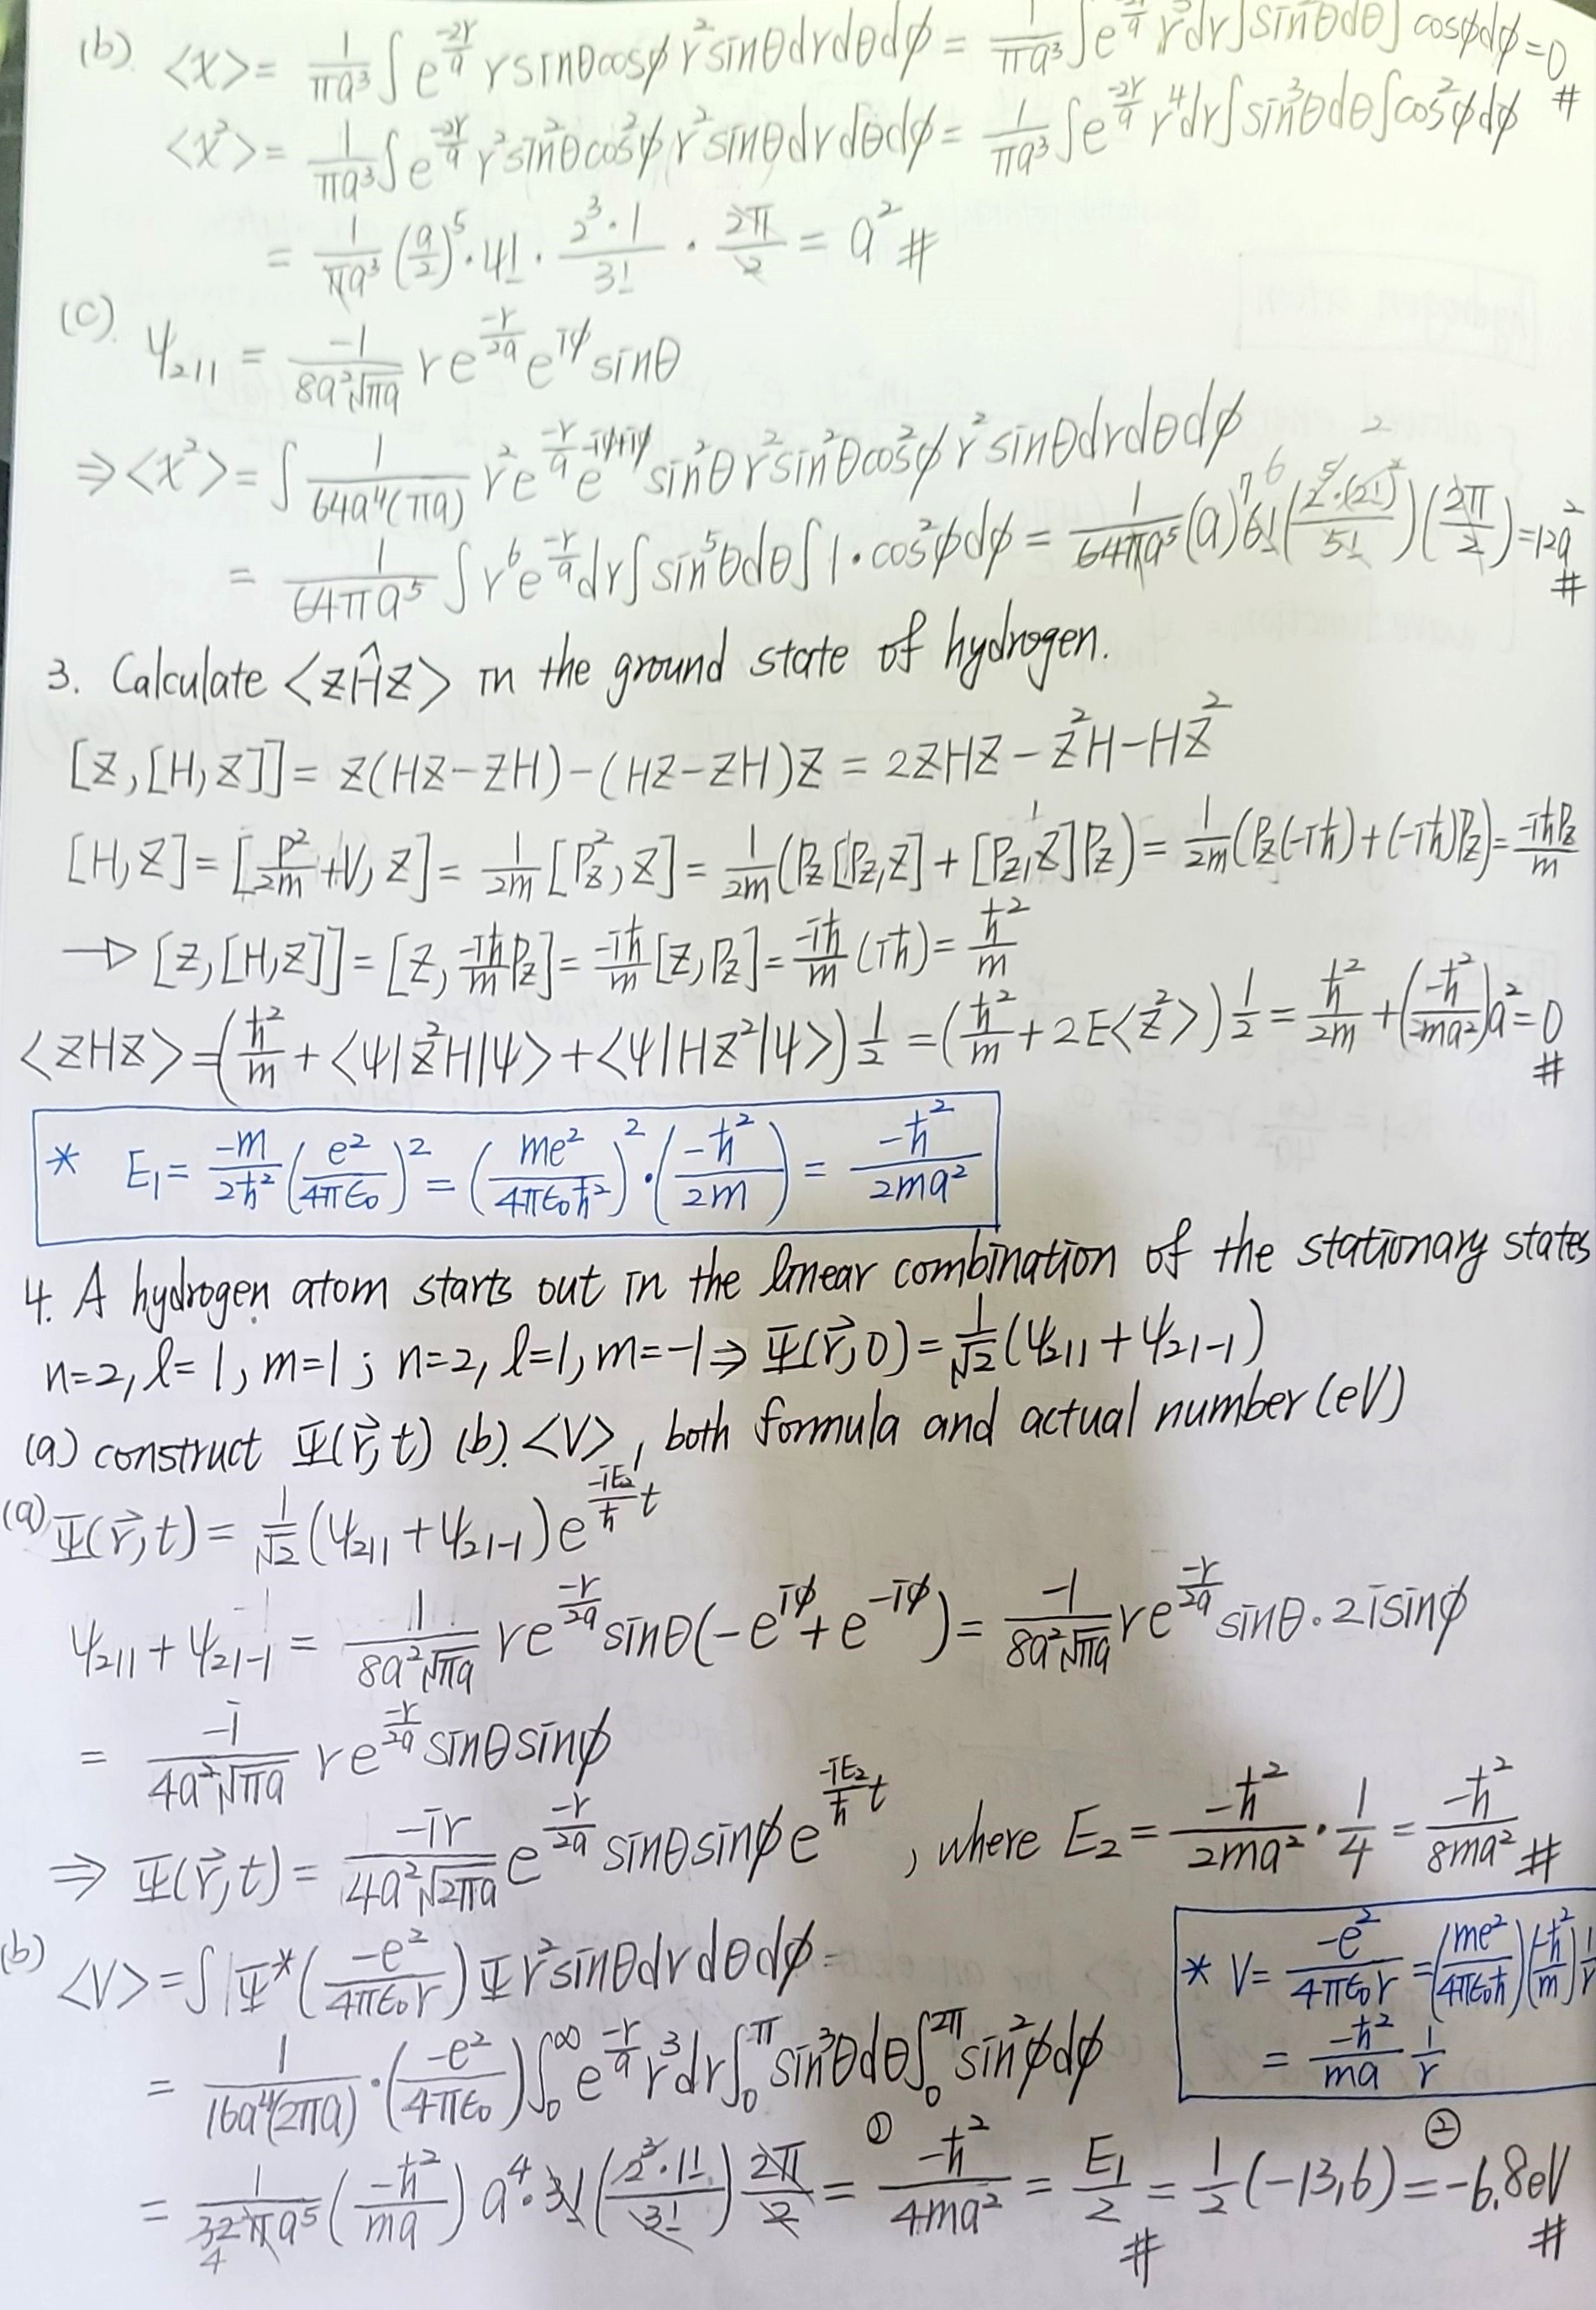 (b). <x> = 1/(πa³) ∫ e^(-2r/a) r sinθcosφ r² sinθdrdθdφ = 1/(πa³) ∫ e^(-2r/a) r³dr ∫ sin²θdθ ∫ cosφdφ = 0 #
<x²> = 1/(πa³) ∫ e^(-2r/a) r² sin²θcos²φ r² sinθdrdθdφ = 1/(πa³) ∫ e^(-2r/a) r⁴dr ∫ sin³θdθ ∫ cos²φdφ
= 1/(πa³) (a/2)⁵ · 4! · (2³·1)/3! · 2π/2 = a² #
(c). ψ₂₁₁ = -1/(8a²√(πa)) r e^(-r/2a) e^(iφ) sinθ
⇒ <x²> = ∫ 1/(64a⁴(πa)) r² e^(-r/a) e^(-iφ+iφ) sin²θ r² sin²θcos²φ r² sinθdrdθdφ
= 1/(64πa⁵) ∫ r⁶ e^(-r/a) dr ∫ sin⁵θdθ ∫ 1·cos²φdφ = 1/(64πa⁵) (a)⁷ 6! (2⁵·(2!)²/5!) (2π/2) = 12a² #
3. Calculate <zĤz> in the ground state of hydrogen.
[z,[H,z]] = z(Hz-zH)-(Hz-zH)z = 2zHz - z²H - Hz²
[H,z] = [p²/2m + V, z] = 1/2m [Pz², z] = 1/2m (Pz[Pz,z] + [Pz,z]Pz) = 1/2m (Pz(-iħ) + (-iħ)Pz) = -iħPz/m
→ [z,[H,z]] = [z, -iħ/m Pz] = -iħ/m [z,Pz] = -iħ/m (iħ) = ħ²/m
<zHz> = (ħ²/m + <ψ|z²H|ψ> + <ψ|Hz²|ψ>) 1/2 = (ħ²/m + 2E<z²>) 1/2 = ħ²/2m + (-ħ²/2ma²)a² = 0 #
* E₁ = -m/2ħ² (e²/4πε₀)² = (me²/4πε₀ħ²)² · (-ħ²/2m) = -ħ²/2ma²
4. A hydrogen atom starts out in the linear combination of the stationary states
n=2, l=1, m=1 ; n=2, l=1, m=-1 ⇒ Ψ(r⃗,0) = 1/√2 (ψ₂₁₁ + ψ₂₁₋₁)
(a) construct Ψ(r⃗,t) (b). <V>, both formula and actual number (eV)
(a) Ψ(r⃗,t) = 1/√2 (ψ₂₁₁ + ψ₂₁₋₁) e^(-iE₂/ħ t)
ψ₂₁₁ + ψ₂₁₋₁ = 1/(8a²√(πa)) r e^(-r/2a) sinθ(-e^(iφ) + e^(-iφ)) = -1/(8a²√(πa)) r e^(-r/2a) sinθ·2isinφ
= -i/(4a²√(πa)) r e^(-r/2a) sinθsinφ
⇒ Ψ(r⃗,t) = -ir/(4a²√(2πa)) e^(-r/2a) sinθsinφ e^(-iE₂/ħ t), where E₂ = -ħ²/2ma² · 1/4 = -ħ²/8ma² #
(b) <V> = ∫ Ψ* (-e²/4πε₀r) Ψ r² sinθdrdθdφ
* V = -e²/4πε₀r = (me²/4πε₀ħ)(-ħ²/m) 1/r
= -ħ²/ma 1/r
= 1/(16a⁴(2πa)) · (-e²/4πε₀) ∫₀^∞ e^(-r/a) r³dr ∫₀^π sin³θdθ ∫₀^2π sin²φdφ
= 1/(32πa⁵) (-ħ²/ma) a⁴·3! (2³·1!/3!) 2π/2 =① -ħ²/4ma² = E₁/2 # = 1/2 (-13.6) =② -6.8eV #
4